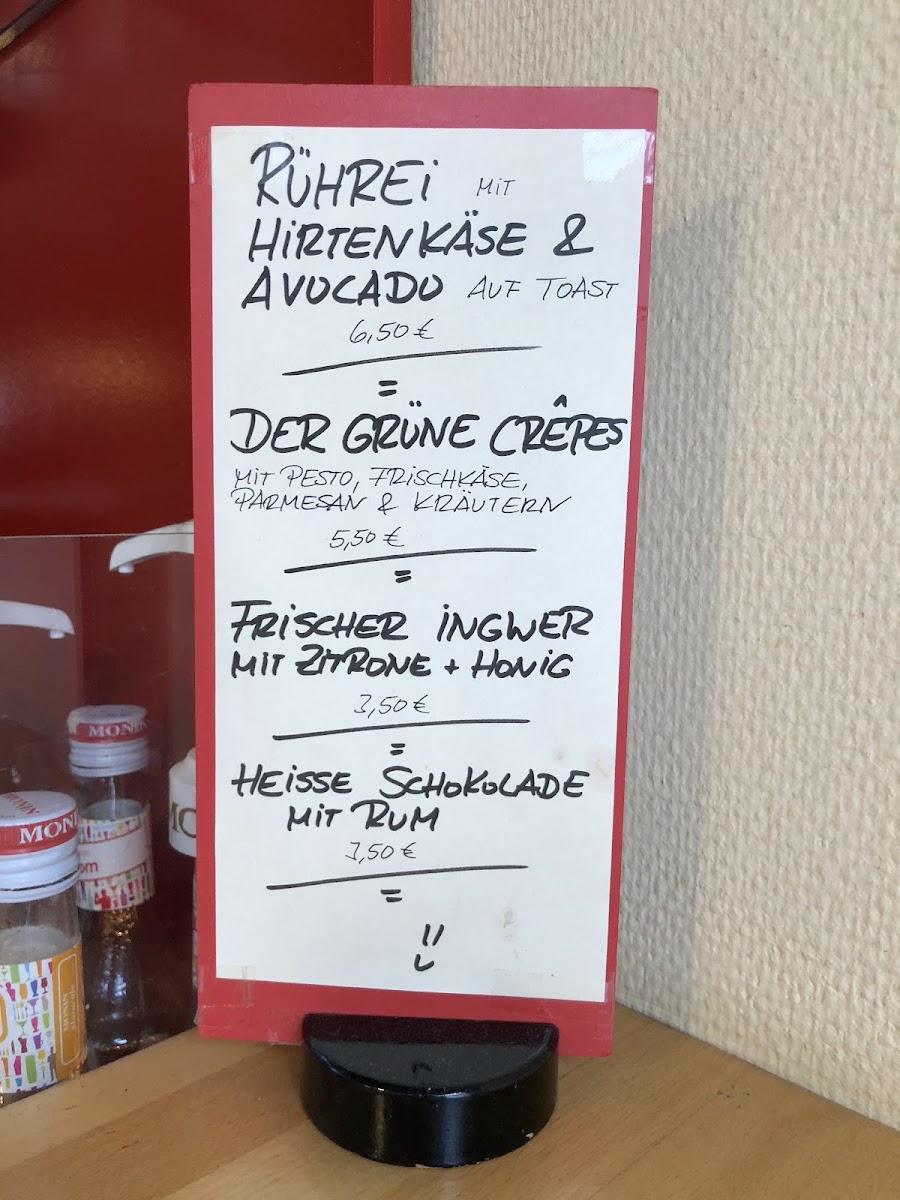 RÜHREI MIT
HIRTENKÄSE &
AVOCADO AUF TOAST
6,50 €
DER GRÜNE CRÊPES
MIT PESTO, FRISCHKÄSE,
PARMESAN & KRÄUTERN
5,50 €
FRISCHER INGWER
MIT ZITRONE + HONIG
3,50 €
HEISSE SCHOKOLADE
MIT RUM
3,50 €
MONIN
MONIN
MONIN